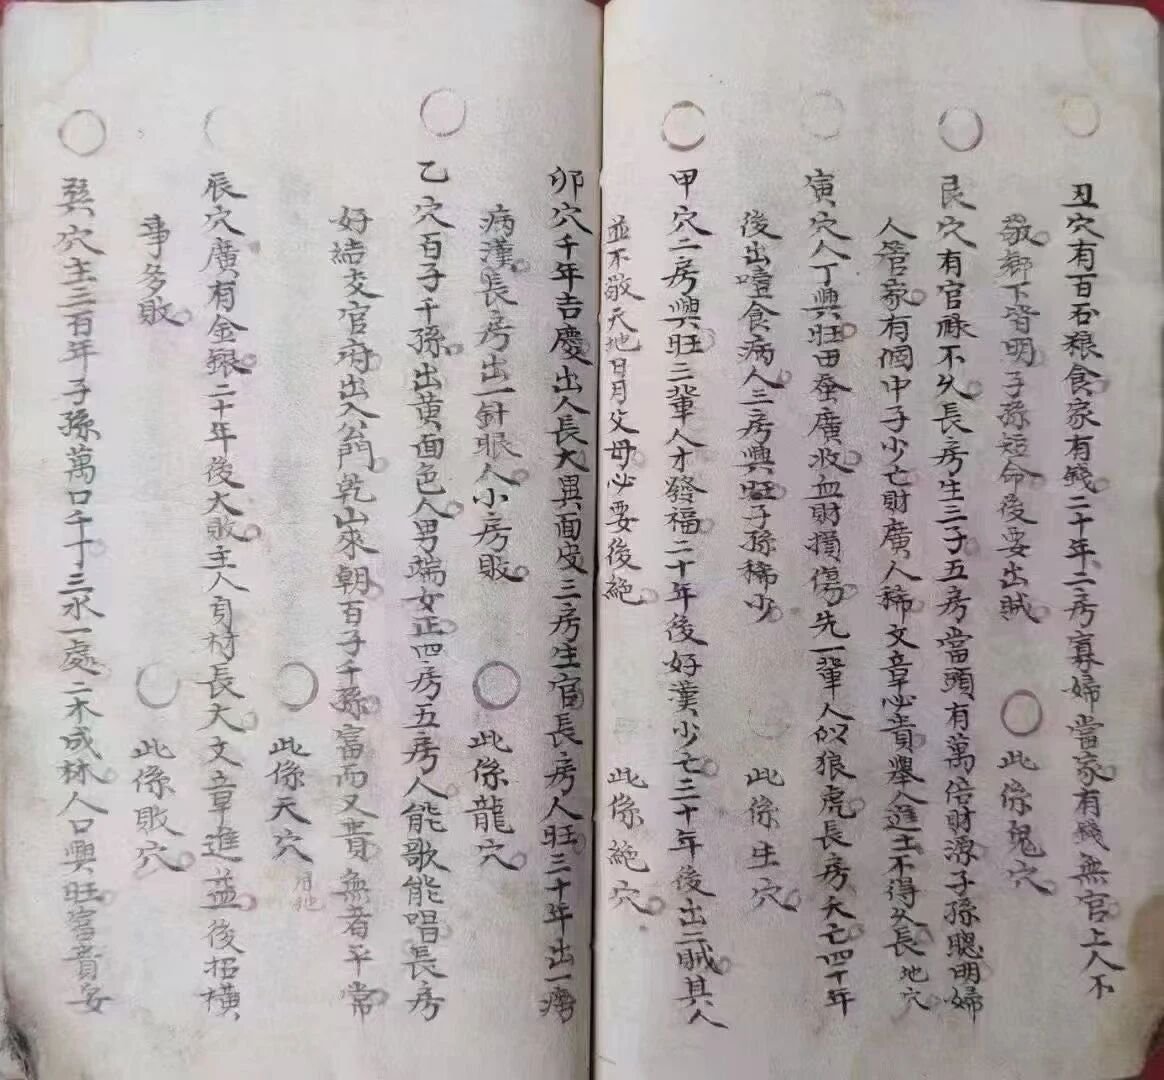 丑穴有百石粮食家有錢二十年二房寡婦當家有錢無官上人不
敬鄉下皆明子孫短命後要出賊
此係鬼穴
艮穴有官祿不久長房生三子五房當頭有萬倍財源子孫聰明婦
人管家有個中子少亡財廣人稀文章必貴舉人進士不得久長地穴
寅穴人丁興旺田蚕廣收血財損傷先一輩人似狼虎長房夭亡四十年
後出噎食病人三房興旺子孫稀少
此係生穴
甲穴二房興旺三輩人才發福二十年後好漢少亡三十年後出二賊其人
並不敬天地日月父母必要後絕
此係絕穴
卯穴千年吉慶出人長大異面皮三房生官長房人旺三十年出一癆
病漢長房出一針眼人小房敗
此係龍穴
乙穴百子千孫出黃面色人男端女正四房五房人能歌能唱長房
好結交官府出入公門乾山來朝百子千孫富而又貴無者平常
此係天穴
辰穴廣有金銀二十年後大敗主人身材長大文章進益後招橫
事多敗
此係敗穴
巽穴主三百年子孫萬口千丁三水一處二木成林人口興旺富貴安